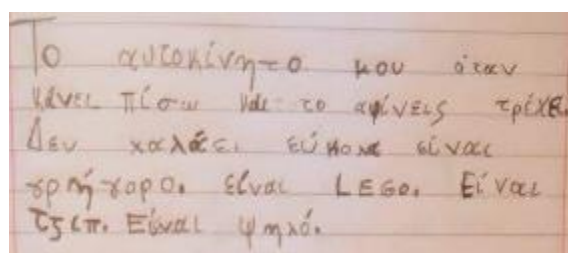 Το αυτοκίνητο μου όταν
κάνει πίσω και το αφίνεις τρέχει.
Δεν χαλάει. εύκολα είναι
γρήγορο. είναι LEGO. Είναι
τζιπ. Είναι ψηλό.